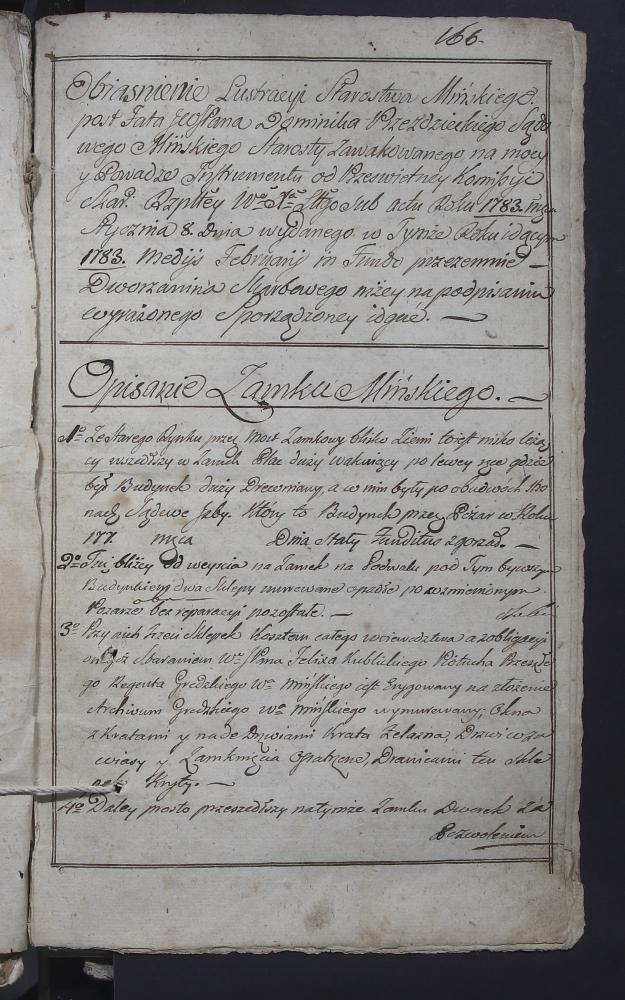 166.
Obiasnienie Lustracyi Starostwa Mińskiego.
post Fata JWoPana Dominika Przezdzieckiego Sądo
wego Mińskiego Starosty Zawakowanego, na mocy
y Powadze Instrumentu od Przeswietney Kommissyi
Skar. Rzpltey Wo Xo Littgo Sub actu Roku 1783. mca
Stycznia 8. Dnia wydanego w Tymże Roku idącym
1783. Medijs Februarij in Fundo przezemnie
Dworzanina Skarbowego niżey na podpisaniu
wyrażonego Sporządzoney idque. —
Opisanie Zamku Mińskiego. —
1o Ze Starego Rynku przez Most Zamkowy blisko Ziemi toiest nisko leżą
cy wszedłszy w Zamek Plac duży wakuiący po lewey ręce gdzie
był Budynek duży Drewniany, a w nim były po obudwóch Stro
nach Sądowe Izby. Który to Budynek przez Pożar w Roku
177 mca Dnia Stały funditus zgorzał. —
2o Tuż bliżey od weyscia na Zamek na Podwalu pod Tym bywszym
Budynkiem dwa Sklepy murowane opadłe po wzmienionym
Pożarze bez reparacyi pozostałe. —
3o Przy nich trzeci Sklepek Kosztem całego woiewodztwa a z obligacyi
onegoż Staraniem Wo JPana Felixa Kublickiego Piotucha Przeszłe
go Regenta Grodzkiego Wo Mińskiego iest Erygowany na złożenie
Archiwum Grodzkiego Wo Mińskiego wymurowany; Okna
z Kratami y nade Drzwiami Krata Zelazna, Drzwi w za
wiasy y Zamknięcia Opatrzone, Dranicami ten Skle
pek Kryty. —
4o Daley prosto przeszedłszy na tymże Zamku Dworek za
Pozwoleniem